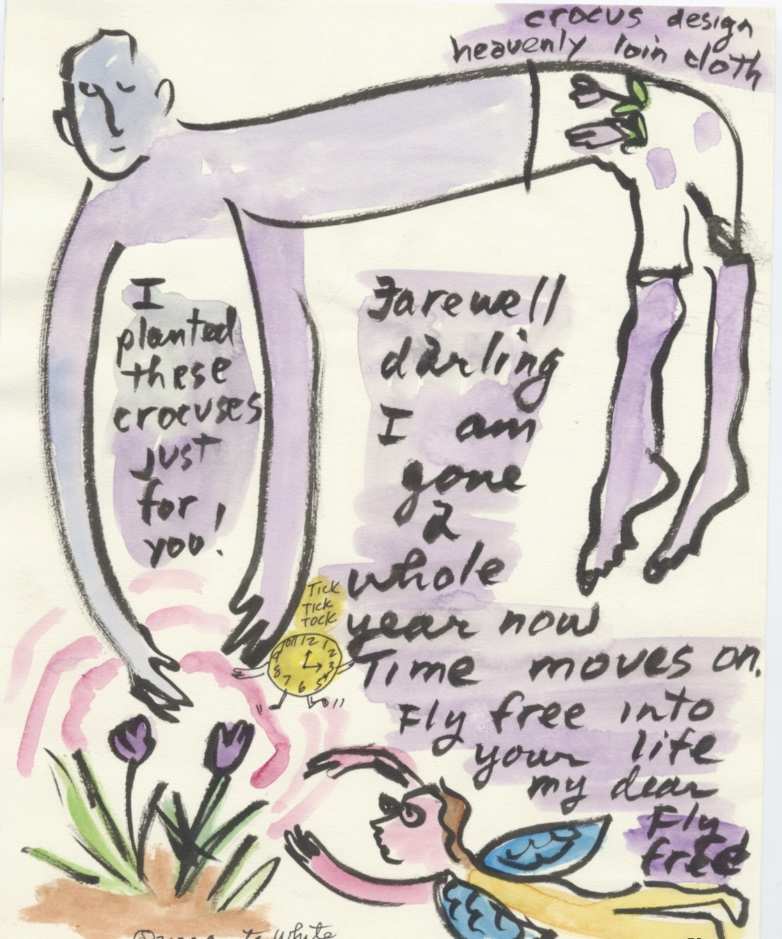 crocus design
heavenly loin cloth
I
planted
these
crocuses
just
for
you!
Farewell
darling
I am
gone
a
whole
year now
Time moves on.
Fly free into
your life
my dear
Fly
free
Tick
Tick
Tock
12
2
3
5
6
7
8
9
White